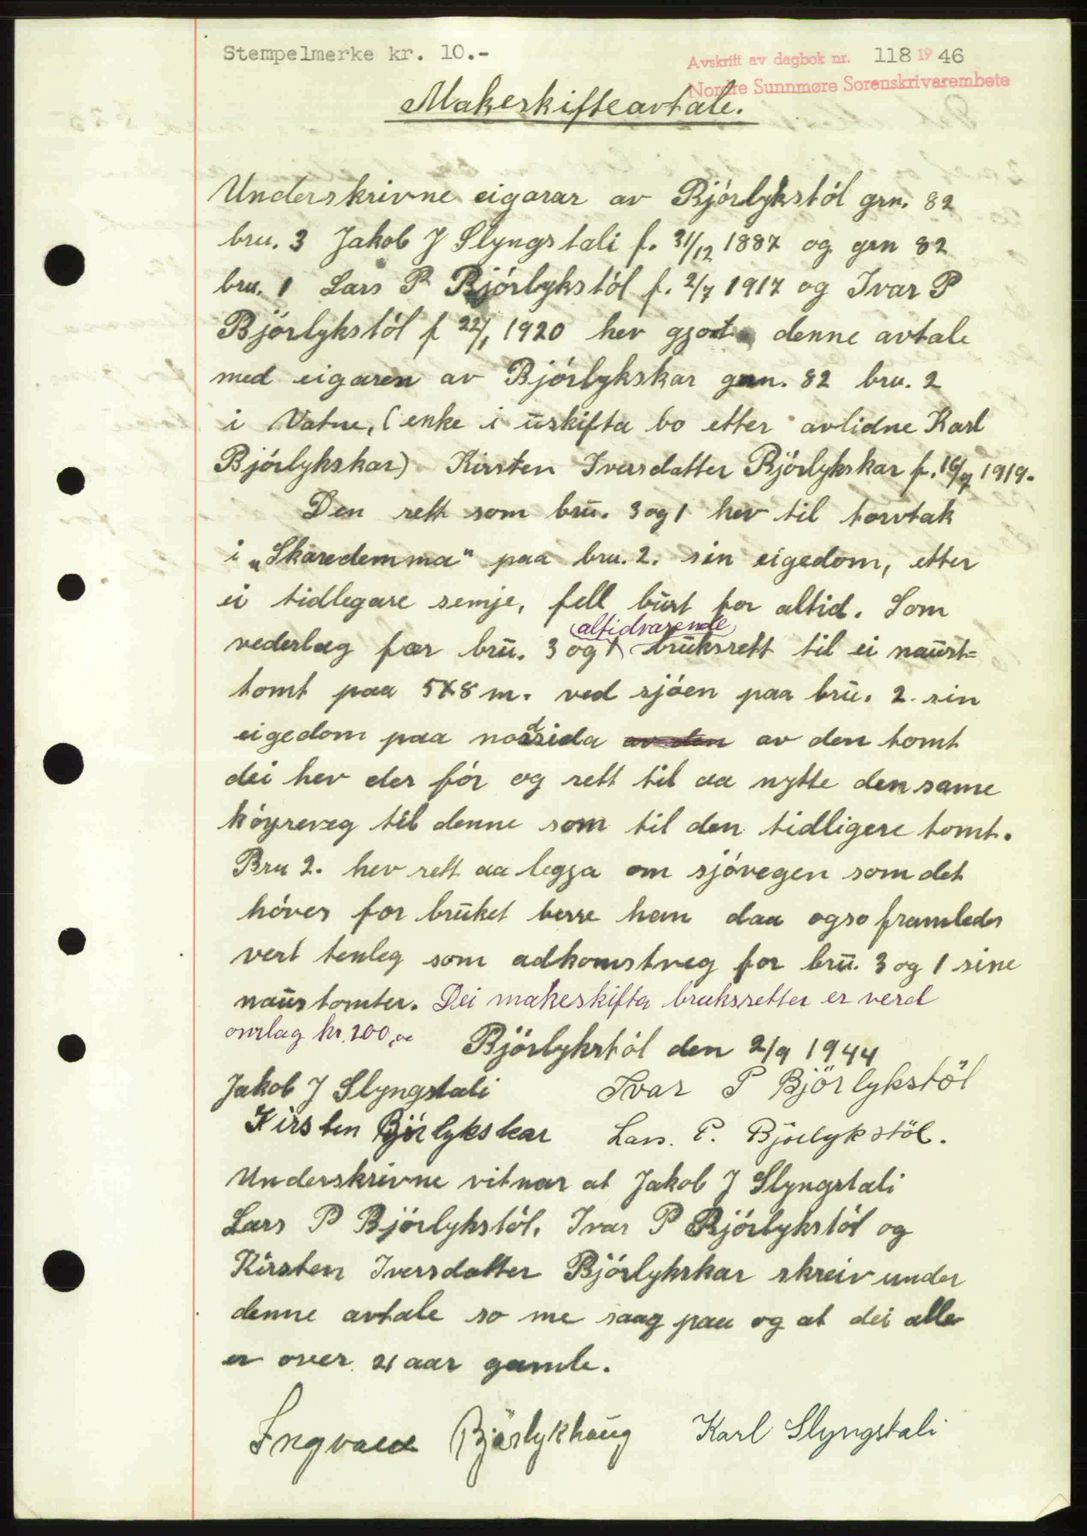 Stempelmerke kr. 10.-
Avskrift av dagbok nr. 118 1946
Nordre Sunnmøre Sorenskrivarembete
Makeskifteavtale.
Underskrivne eigarar av Bjórlykstól grn. 82
bru. 3 Jakob J Slyngstali f. 31/12 1887 og grn 82
bru. 1 Lars P Bjórlykstól f. 2/7 1917 og Ivar P
Bjórlykstól f 22/1 1920 hev gjort denne avtale
med eigaren av Bjórlykskar grn. 82 bru. 2
i Vatne, (enke i uskifta bo etter avlidne Karl
Bjórlykskar) Kirsten Iversdatter Bjórlykskar f. 16/7 1919.
Den rett som bru. 3 og 1 hev til torvtak
i „Skaredemma" paa bru. 2. sin eigedom, etter
ei tidlegare semje, fell burt for altid. Som
(altidvarende)
vederlag fær bru. 3 og 1 bruksrett til ei naust=
tomt paa 5X8 m. ved sjóen paa bru. 2. sin
eigedom paa nordsida av den av den tomt
dei hev der fór og rett til aa nytte den same
kóyreveg til denne som til den tidligere tomt.
Bru 2. hev rett aa legga om sjóvegen som det
hóver for bruket berre han daa ogso framleder
vert tenleg som adkomstveg for bru. 3 og 1 sine
naustomter. Dei makeskifta bruksretter er verd
omlag kr. 200,00
Bjórlykstól den 2/9 1944
Jakob J Slyngstali Ivar P Björlykstöl
Kirsten Björlykskar Lars. P. Björlykstöl.
Underskrivne vitnar at Jakob J Slyngstali
Lars P Bjórlykstól, Ivar P Bjórlykstól og
Kirsten Iversdatter Bjórlykskar skreiv under
denne avtale so me saag paa og at dei alle
er over 21 aar gamle.
Ingvald Björlykhaug Karl Slyngstali